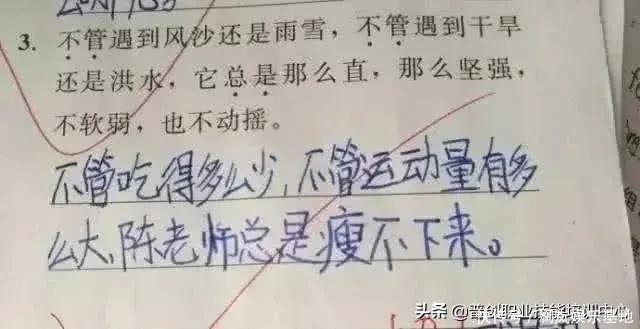 3. 不管遇到风沙还是雨雪，不管遇到干旱
还是洪水，它总是那么直，那么坚强，
不软弱，也不动摇。
不管吃得多么少，不管运动量有多
么大，陈老师总是瘦不下来。
头条 @普创职业技能培训中心